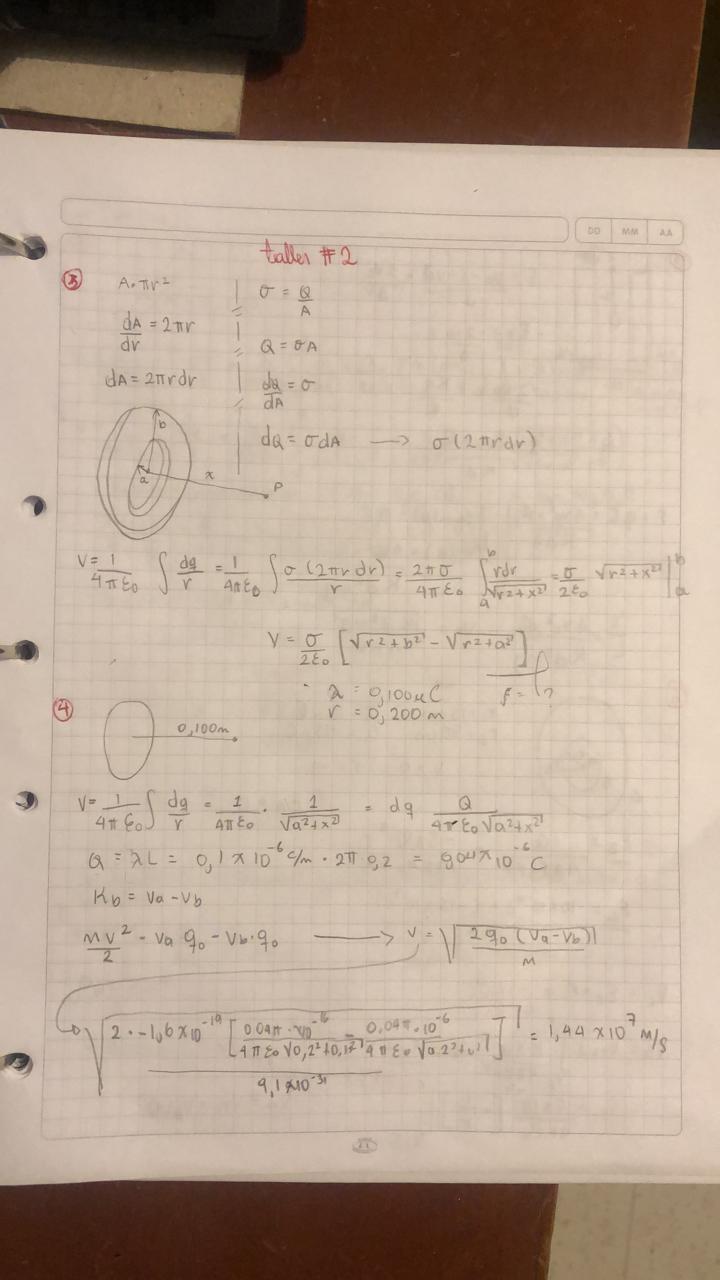 DD MM AA
taller #2
③ A = πr² σ = Q/A
dA/dr = 2πr
Q = σA
dA = 2πrdr dQ/dA = σ
dQ = σdA → σ(2πrdr)
b
a x P
V = 1/4πε₀ ∫ dq/r = 1/4πε₀ ∫ σ(2πrdr)/r = 2πσ/4πε₀ ∫ₐᵇ rdr/√(r²+x²) = σ/2ε₀ √(r²+x²) |ₐᵇ
V = σ/2ε₀ [√(r²+b²) - √(r²+a²)]
λ = 0,100μC
r = 0,200 m
④ 0,100m
V = 1/4πε₀ ∫ dq/r = 1/4πε₀ · 1/√(a²+x²) = dq Q/4πε₀√(a²+x²)
Q = λL = 0,1 x 10⁻⁶ c/m · 2π 0,2 = 0,04π x 10⁻⁶ C
Kb = Va - Vb
MV²/2 = Va q₀ - Vb·q₀ → V = √(2q₀(Va-Vb)/M)
√(2·-1,6x10⁻¹⁹ [0,04π·10⁻⁶/4πε₀√(0,2²+0,1²) - 0,04π·10⁻⁶/4πε₀]/9,1x10⁻³¹) = 1,44 x10⁷ M/s